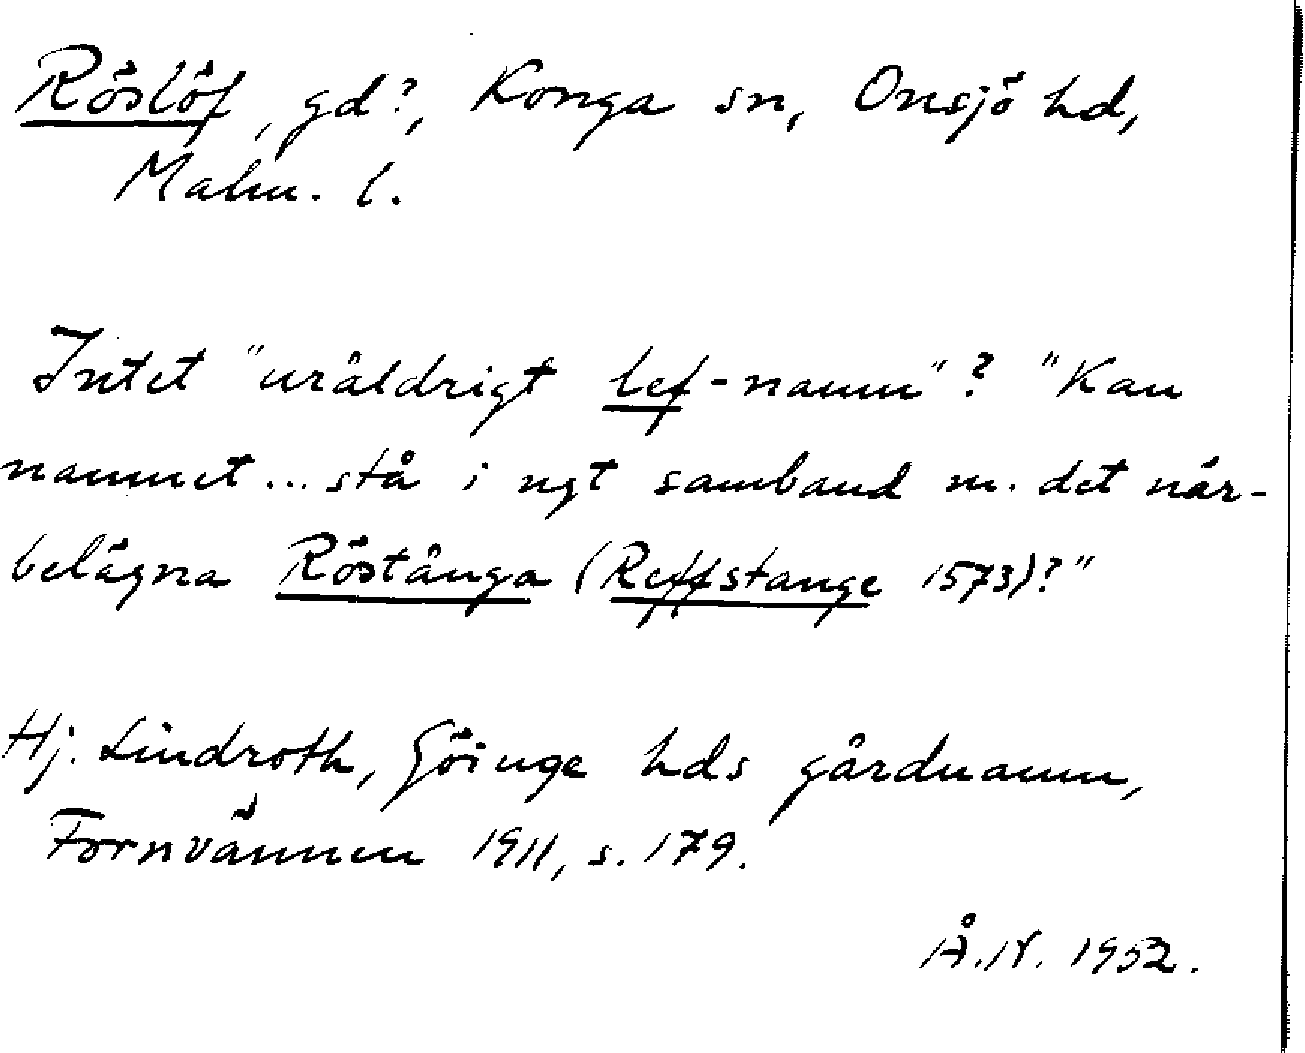 Röslöf, gd?, Konga sn, Onsjö hd,
Malm. l.
Intet "uråldrigt lef-namn"? "Kan
namnet... stå i ngt samband m. det när-
belägna Röstånga (Reffstange 1573)?"
Hj. Lindroth, Göinge hds gårdnamn,
Fornvännen 1911, s. 179.
Å.N. 1952.